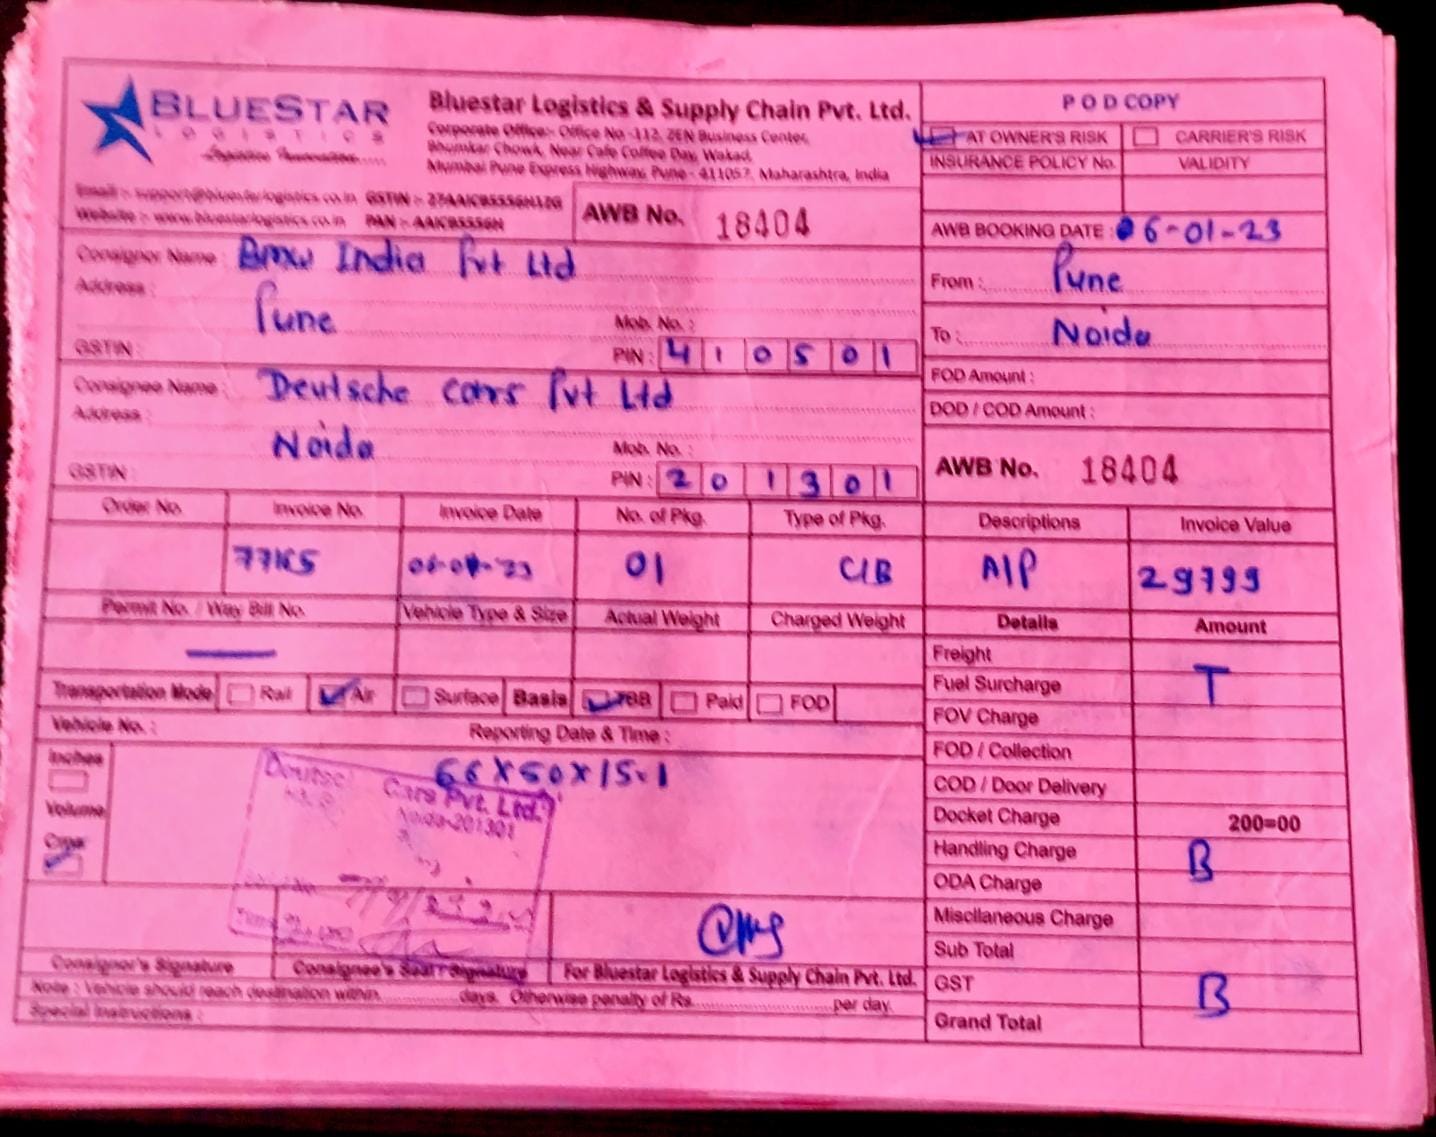 BLUESTAR
LOGISTICS
Bluestar Logistics & Supply Chain Pvt. Ltd.
Corporate Office:- Office No -112, ZEN Business Center,
Bhumkar Chowk, Near Cafe Coffee Day, Wakad,
Mumbai Pune Express Highway, Pune - 411057, Maharashtra, India
Email :- support@bluestarlogistics.co.in
Website :- www.bluestarlogistics.co.in PAN :- AAICB5556H
AWB No. 18404
POD COPY
AT OWNER'S RISK CARRIER'S RISK
INSURANCE POLICY No. VALIDITY
AWB BOOKING DATE : 06-01-23
From : Pune
To : Noida
FOD Amount :
DOD / COD Amount :
AWB No. 18404
Consignor Name : Bmw India Pvt Ltd
Address :
Pune Mob. No. :
GSTIN : PIN : 410501
Consignee Name : Deutsche cars Pvt Ltd
Address :
Noida Mob. No. :
GSTIN : PIN : 201301
Order No. Invoice No. Invoice Date No. of Pkg. Type of Pkg. Descriptions Invoice Value
01 C/B A/P 29799
Permit No. / Way Bill No. Vehicle Type & Size Actual Weight Charged Weight Details Amount
Freight
Fuel Surcharge T
FOV Charge
FOD / Collection
COD / Door Delivery
Docket Charge 200=00
Handling Charge B
ODA Charge
Miscilaneous Charge
Sub Total
GST B
Grand Total
Transportation Mode Rail Air Surface Basis TBB Paid FOD
Vehicle No. : Reporting Date & Time :
Inches
Volume
Cms
66x50x15.1
Cars Pvt. Ltd.
Noida-201301
Consignor's Signature Consignee's Seal / Signature For Bluestar Logistics & Supply Chain Pvt. Ltd.
Note : Vehicle should reach destination within...............days. Otherwise penalty of Rs..........................per day.
Special Instructions :